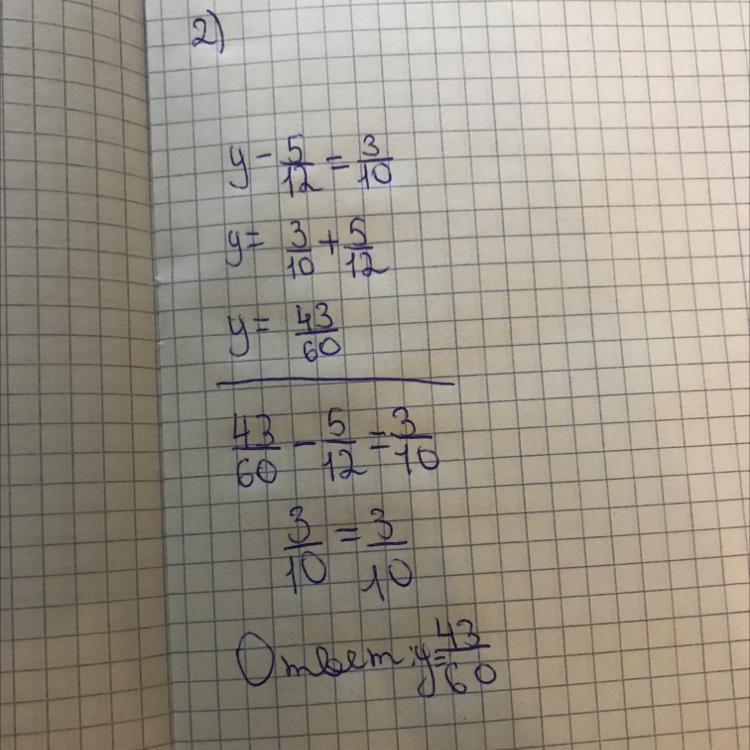 2)
y - 5/12 = 3/10
y = 3/10 + 5/12
y = 43/60
43/60 - 5/12 = 3/10
3/10 = 3/10
Ответ: y = 43/60